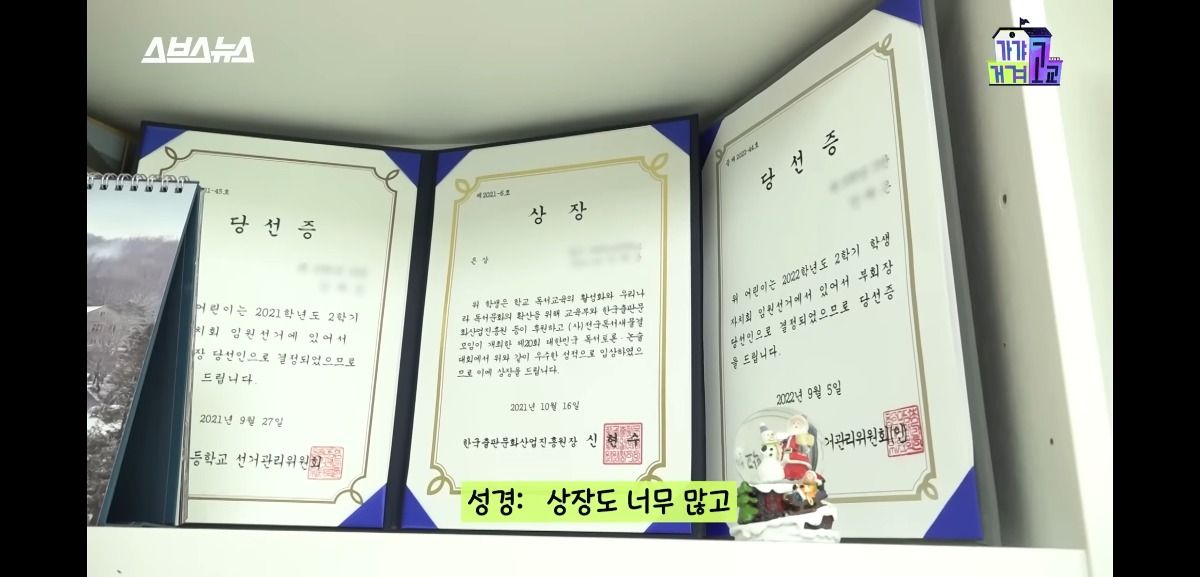 스브스뉴스
가갸
거겨
고교
1-45호
당 선 증
어린이는 2021학년도 2학기
자치회 임원선거에 있어서
장 당선인으로 결정되었으므로
드립니다.
2021년 9월 27일
등학교 선거관리위원회
제 2021-6호
상 장
은 상
위 학생은 학교 독서교육의 활성화와 우리나
라 독서문화의 확산을 위해 교육부와 한국출판문
화산업진흥원 등이 후원하고 (사)전국독서새물결
모임이 개최한 제20회 대한민국 독서토론·논술
대회에서 위와 같이 우수한 성적으로 입상하였으
므로 이에 상장을 드립니다.
2021년 10월 16일
한국출판문화산업진흥원장 신 현 수
제 2022-44호
당 선 증
위 어린이는 2022학년도 2학기 학생
자치회 임원선거에서 있어서 부회장
당선인으로 결정되었으므로 당선증
을 드립니다.
2022년 9월 5일
거관리위원회(인)
성경: 상장도 너무 많고